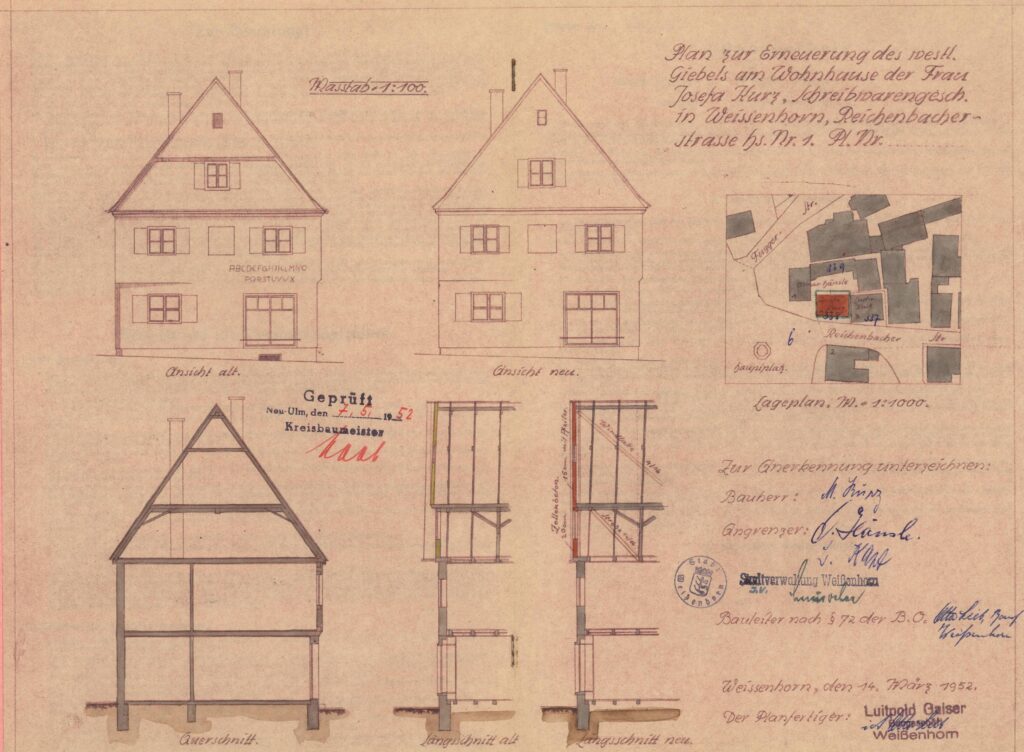 Plan zur Erneuerung des westl.
Giebels am Wohnhause der Frau
Josefa Kurz, Schreibwarengesch.
in Weissenhorn, Reichenbacher-
strasse hs. Nr. 1. Pl. Nr.
Masstab = 1:100.
ABCDEFGHIKLMNO
PQRSTUVWX
Ansicht alt.
Ansicht neu.
Fugger Str.
339
338
337
6
2
Reichenbacher Str
Hauptplatz.
Lageplan, M. = 1:1000.
Geprüft
Neu-Ulm, den 7. 5. 1952
Kreisbaumeister
Zellenbeton
20cm
15cm mit Pfeiler
Zur Anerkennung unterzeichnen:
Bauherr: M. Kurz
Angrenzer:
Stadt Weißenhorn
Stadtverwaltung Weißenhorn
Bauleiter nach § 72 der B.O.
Weißenhorn
Weissenhorn, den 14. März 1952.
Der Planfertiger:
Luitpold Gaiser
Weißenhorn
Querschnitt.
Längsschnitt alt
Längsschnitt neu.